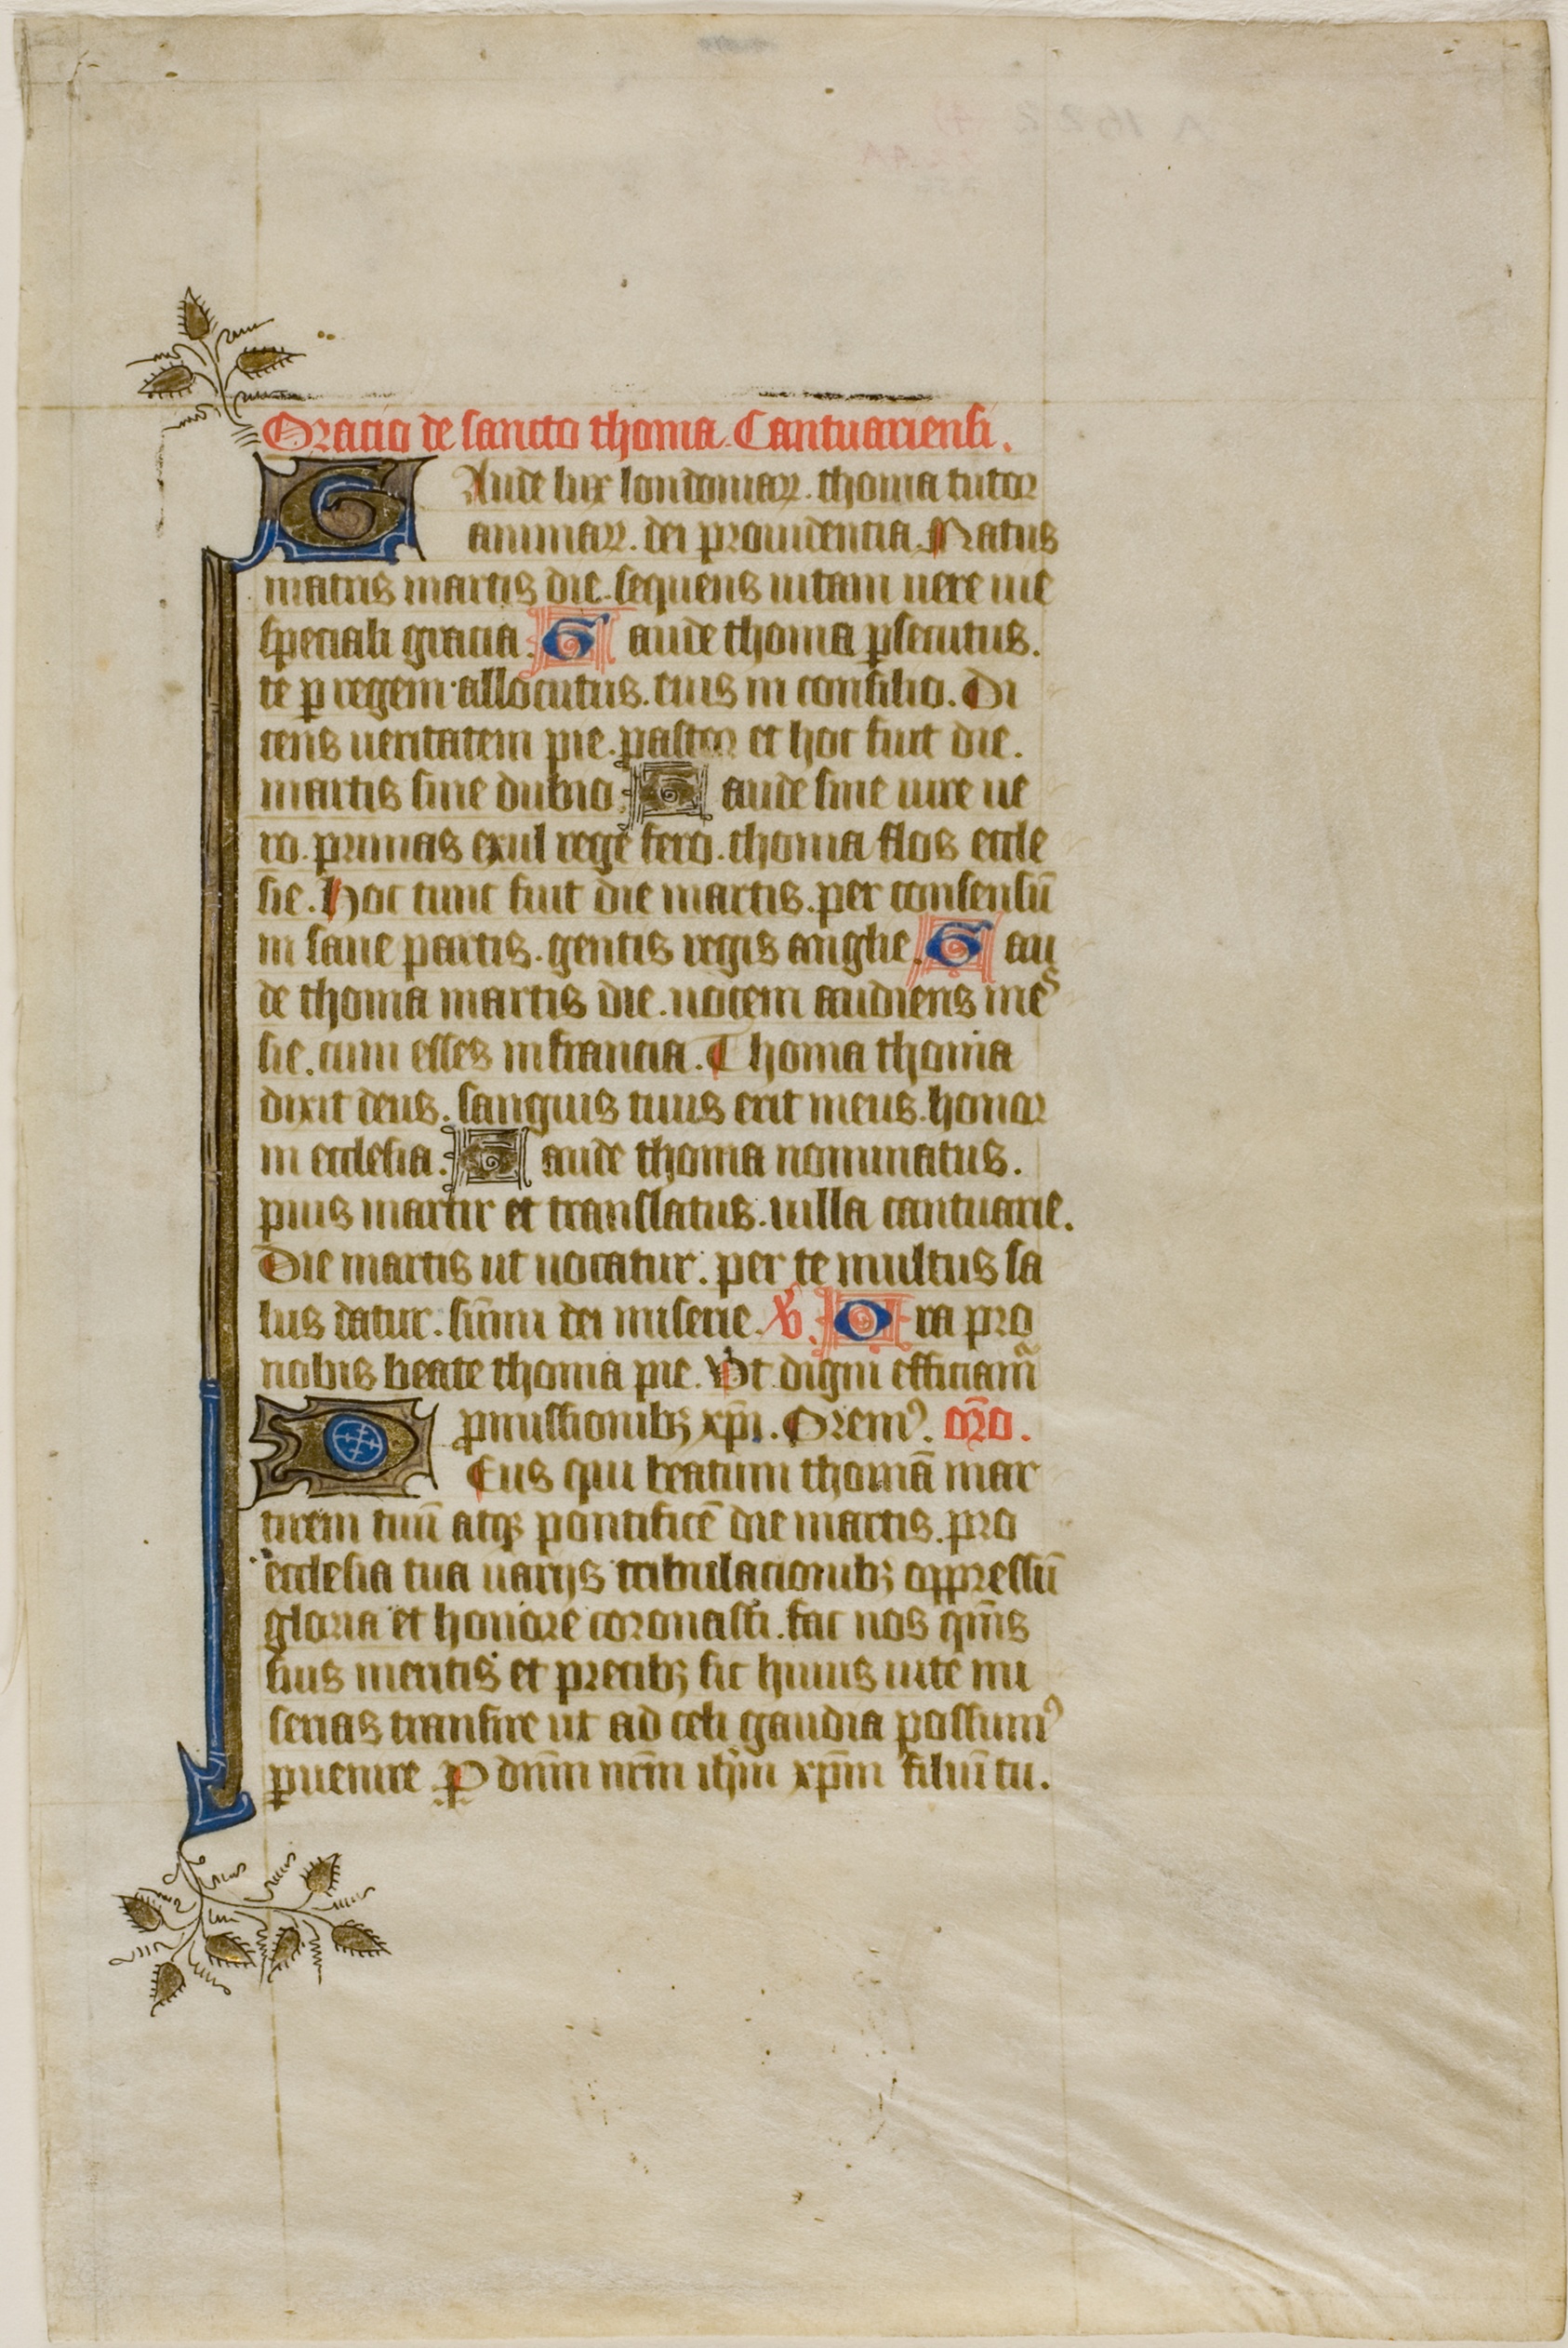 Oracio de sancto thoma. Cantuariensi.
GAude lux londoniaꝝ. thoma tutor
animaꝝ. dei prouidentia. Natus
matris martis die. sequens uitam uere uie
speciali gracia. Gaude thoma ꝑsecutus.
te ꝑ regem allocutus. eius in consilio. Di
cens ueritatem pie. pastor et hoc fuit die.
martis sine dubio. Gaude sine iure ue
ro. primas exul rege fero. thoma flos eccle
sie. Hoc tunc fuit die martis. per consensū
in saue partis. gentis regis anglie. Gau
de thoma martis die. uocem audiens mes
sie. cum esses in francia. Thoma thoma
dixit deus. sanguis tuus erit meus. honor
in ecclesia. Gaude thoma nominatus.
pius martir et translatus. uilla cantuarie.
Die martis ut uocatur. per te multus sa
lus datur. sūmi dei miserie. ℣. Ora pro
nobis beate thoma pie. Ut digni efficiam̃
ꝓmissionibꝫ xp̄i. Oremꝰ. or̄o.
DEus qui beatum thomā mar
tirem tuū atqꝫ pontificē die martis. pro
ecclesia tua uarijs tribulacionibꝫ oppressū
gloria et honore coronasti. fac nos qm̄s
suis meritis et precibꝫ sic huius uite mi
serias transire ut ad celi gaudia possumꝰ
ꝑuenire Ꝑ dn̄m nr̄m ih̄m xp̄m filiū tu.